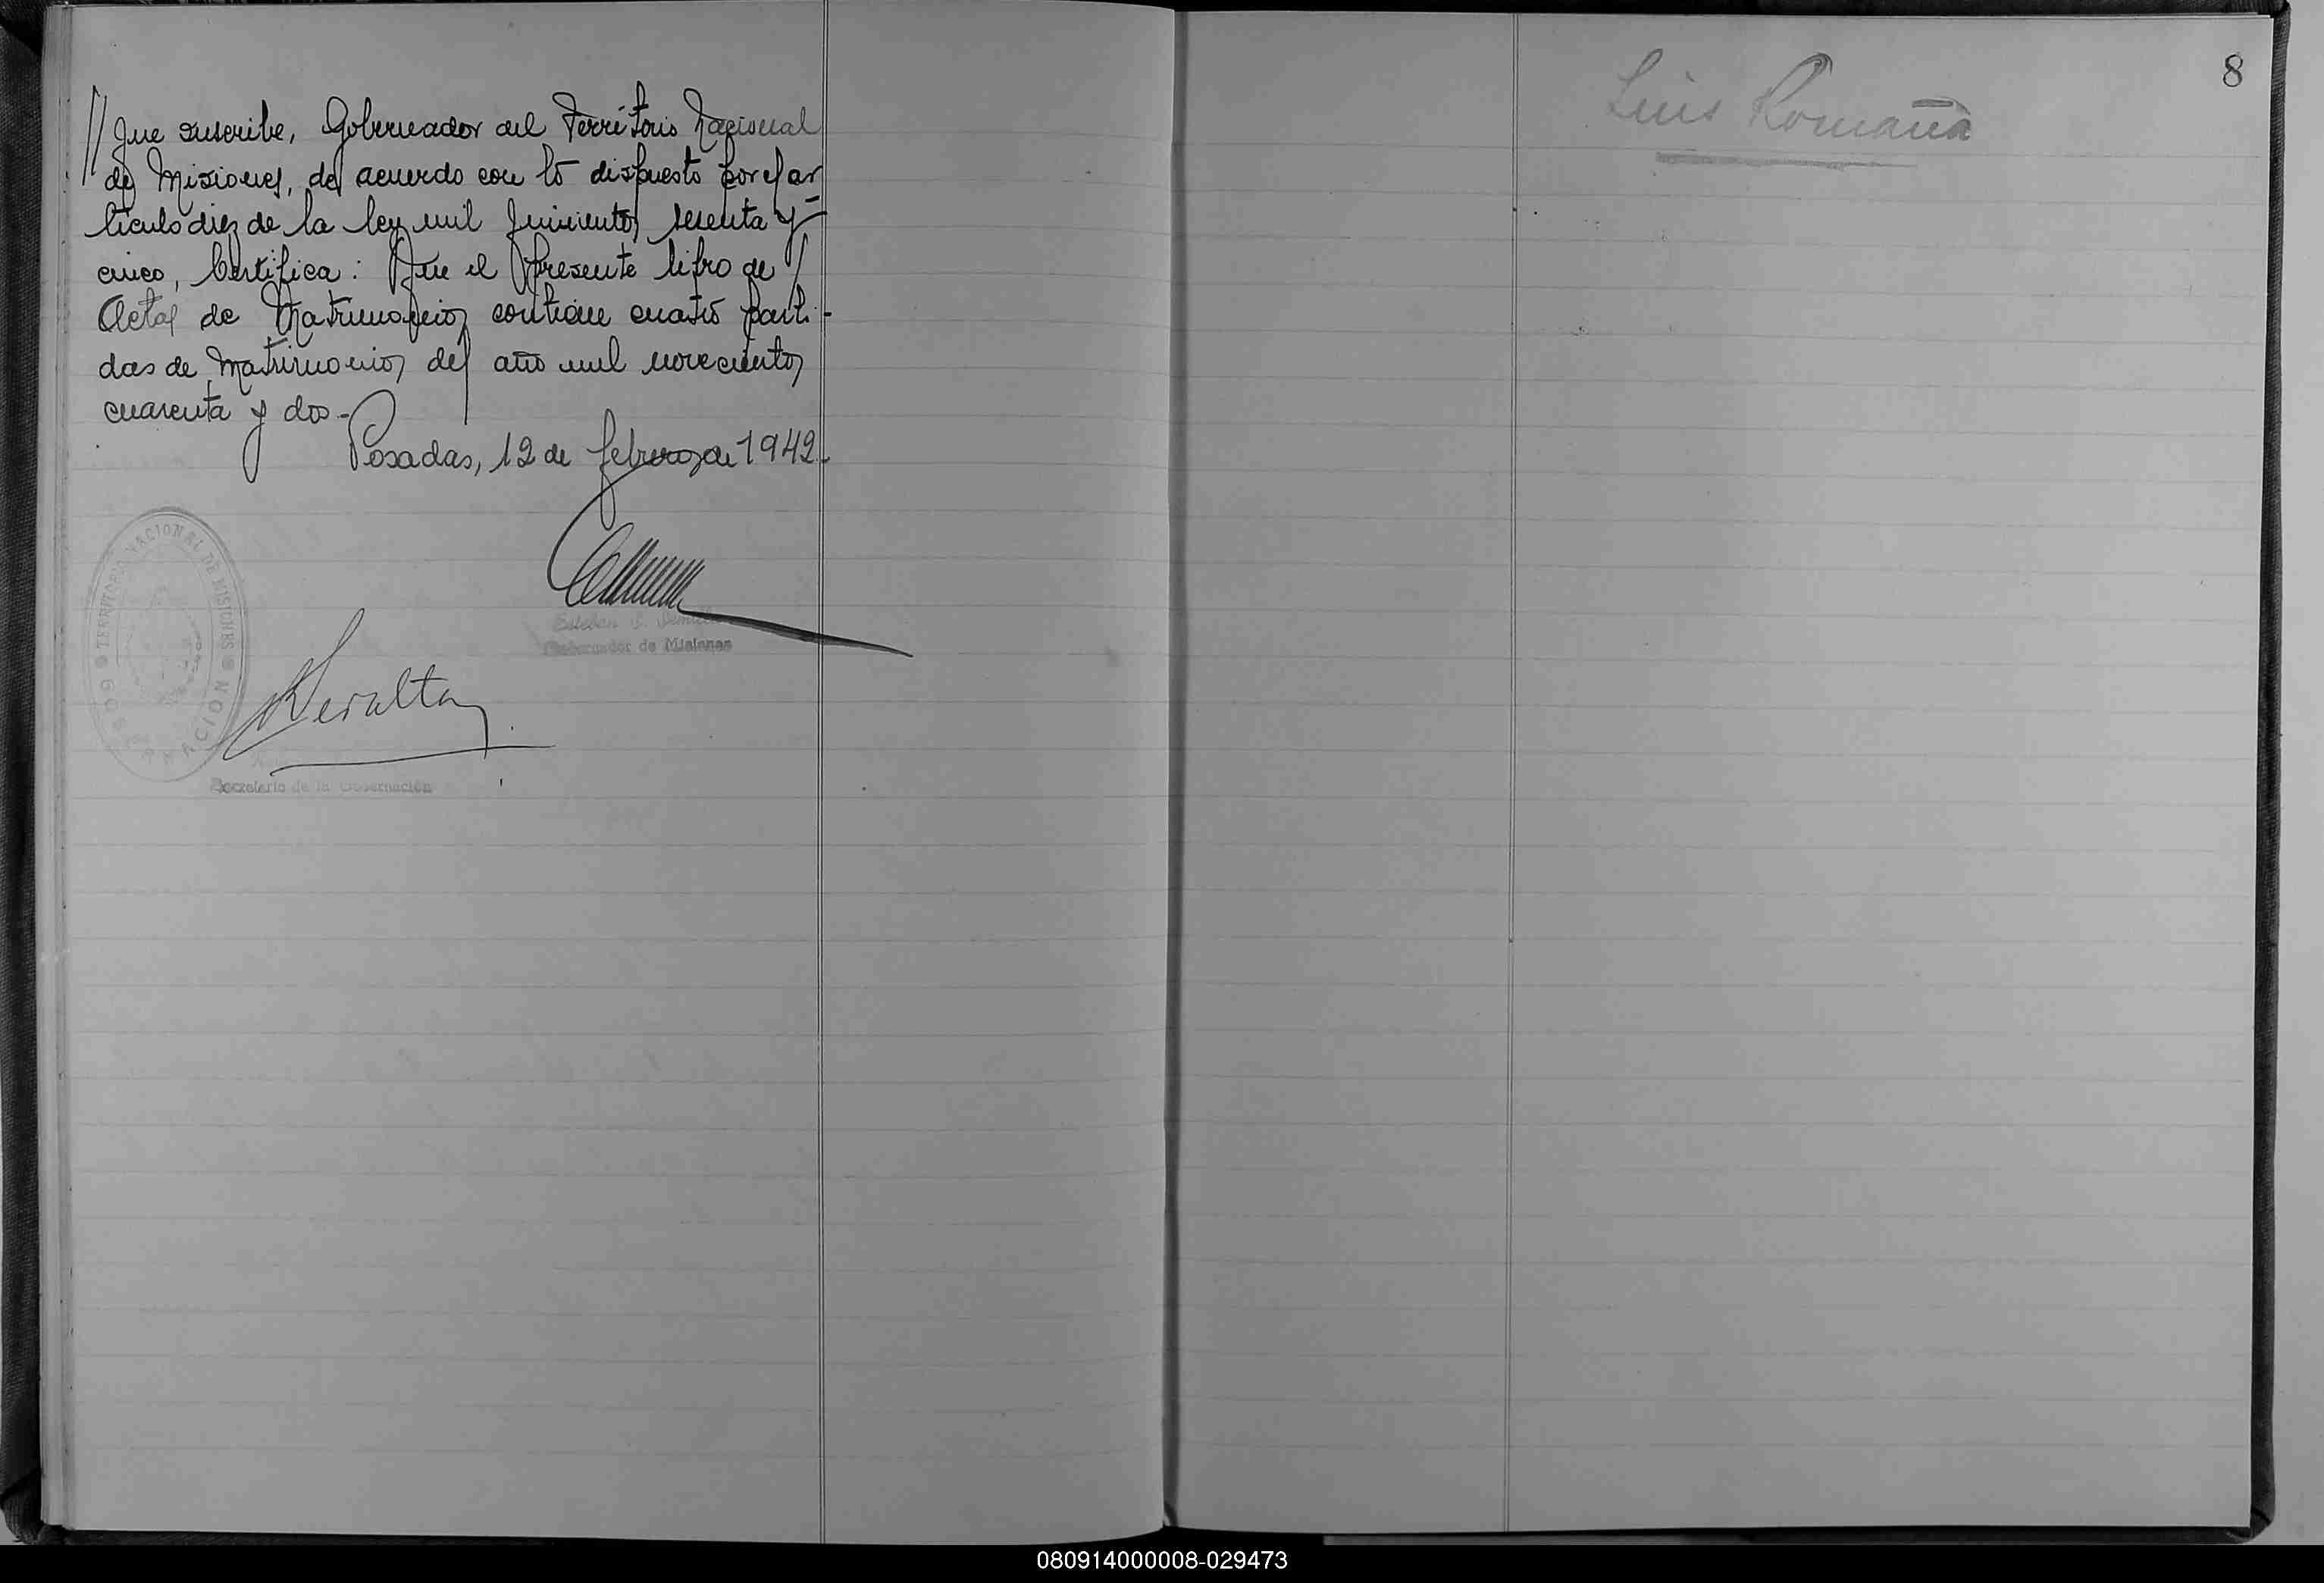 // que suscribe, Gobernador del Territorio Nacional
de Misiones, de acuerdo con lo dispuesto por el ar
tículo diez de la ley mil quinientos sesenta y-
cinco, Certifica: Que el presente libro de
Actas de Matrimonios contiene cuatro parti-
das de Matrimonios del año mil novecientos
cuarenta y dos.-
Posadas, 12 de febrero de 1942.
TERRITORIO NACIONAL DE MISIONES
GOBERNACION
Esteban
Gobernador de Misiones
Peralta
Secretario de la Gobernación
Luis Romaña
8
080914000008-029473